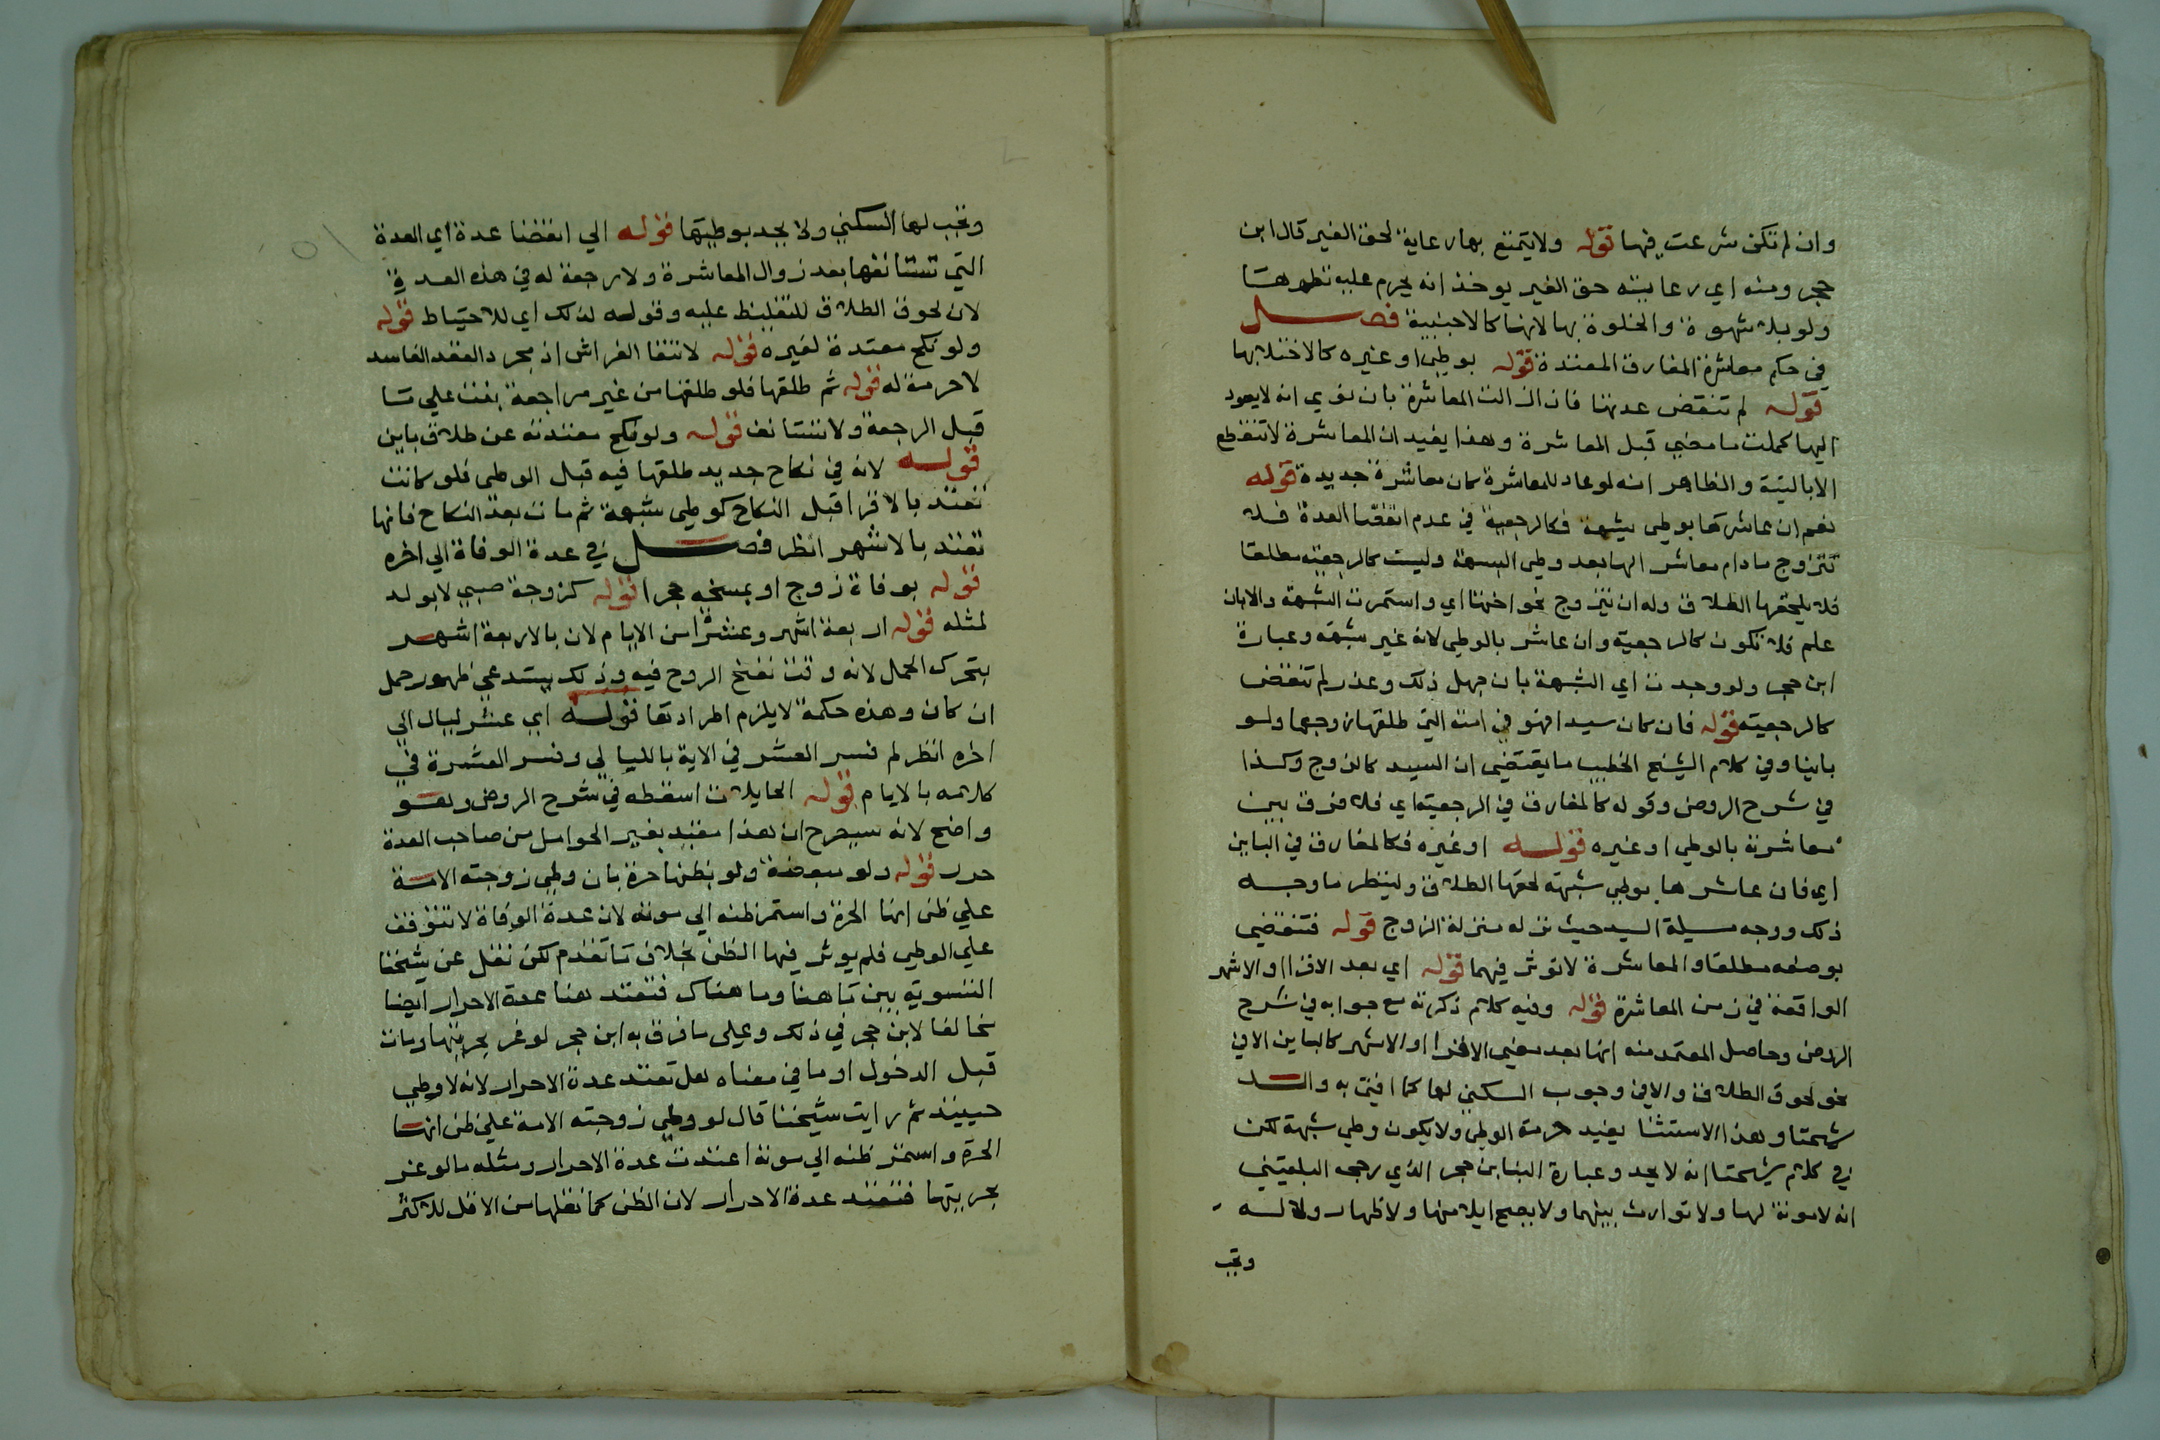 وان لم تكن شرعت فيها قوله ولا يتمتع بها رعاية لحق الغير قال ابن
حجر ومنه اي رعايته حق الغير يوخذ انه يحرم عليه نظرها
ولو بلا شهوة والخلوة بها لانها كالاجنبية فصل
في حكم معاشرة المفارق المعتدة قوله بوطي او غيره كالاختلا بها
قوله لم تنقض عدتها فان زالت المعاشرة بان نوي انه لا يعود
اليها كملت ما مضي قبل المعاشرة وهذا يفيد ان المعاشرة لا تنقطع
الا بالنية والظاهر انه لو عاد للمعاشرة كان معاشرة جديدة قوله
نعم ان عاشرها بوطي بشبهة فكالرجعية في عدم انقضا العدة فلا
تتزوج ما دام معاشر الها بعد وطي الشبهة وليست كالرجعية مطلقا
فلا يلحقها الطلاق وله ان يتزوج نحو اختها اي واستمرت الشبهة والا بان
علم فلا تكون كالرجعية وان عاشر بالوطي لانه غير شبهة وعبارة
ابن حجر ولو وجدت اي الشبهة بان جهل ذلك وعذر لم تنقض
كالرجعية قوله فان كان سيدا فهو في امته التي طلقها زوجها ولو
باينا وفي كلام الشيخ الخطيب ما يقتضي ان السيد كالزوج وكذا
في شرح الروض وقوله كالمفارق في الرجعية اي فلا فرق بين
معاشرته بالوطي او غيره قوله او غيره فكالمفارق في الباين
اي فان عاشرها بوطي شبهة لحقها الطلاق ولينظر ما وجه
ذلك ووجه مسيلة السيد حيث نزله منزلة الزوج قوله فتنقضي
بوضعه مطلقا والمعاشرة لا توثر فيهما قوله اي بعد الاقرا او الاشهر
الواقعة في زمن المعاشرة قوله وفيه كلام ذكرته مع جوابه في شرح
الروض وحاصل المعتمد منه انها بعد مضي الاقرا او الاشهر كالباين الا في
نحو لحوق الطلاق والا في وجوب السكني لها كما افتي به والد
شيخنا وهذا الاستثنا يفيد حرمة الوطي ولا يكون وطي شبهة لكن
في كلام شيخنا انه لا يحد وعبارة ابن حجر الذي رجحه البلقيني
انه لا مونة لها ولا توارث بينهما ولا يصح ايلا منها ولا ظهار ولا له
وتجب
وتجب لها السكني ولا يحد بوطيها قوله الي انقضا عدة اي العدة
التي تستانفها بعد زوال المعاشرة ولا رجعة له في هذه العدة
لان لحوق الطلاق للتغليظ عليه وقوله لذلك اي للاحتياط قوله
ولو نكح معتدة لغيره قوله لانتفا الفراش اذ مجرد العقد الفاسد
لا حرمة له قوله ثم طلقها فلو طلقها من غير مراجعة بنت علي ما
قبل الرجعة ولا تستانف قوله ولو نكح معتدته عن طلاق باين
قوله لانه في نكاح جديد طلقها فيه قبل الوطي فلو كانت
تعتد بالاقرا قبل النكاح كوطي شبهة ثم مات بعد النكاح فانها
تعتد بالاشهر انظر فصل في عدة الوفاة الي اخره
قوله بوفاة زوج او بمسخه حجرا قوله كزوجة صبي لا يولد
لمثله قوله اربعة اشهر وعشرا من الايام لان بالاربعة اشهر
يتحرك الحمل لانه وقت نفخ الروح فيه وذلك يستدعي ظهور حمل
ان كان وهذه حكمة لا يلزم اطرادها قوله اي عشر ليال الي
اخره انظر لم فسر العشر في الاية بالليالي وفسر العشرة في
كلامه بالايام قوله الحايلات اسقطه في شرح الروض وهو
واضح لانه سيصرح ان هذا مقيد بغير الحوامل من صاحب العدة
حرر قوله ولو مبعضة ولو بظنها حرة بان وطي زوجته الامة
علي ظن انها الحرة واستمر ظنه الي موته لان عدة الوفاة لا تتوقف
علي الوطي فلم يوثر فيها الظن بخلاف ما تقدم لكن نقل عن شيخنا
التسوية بين ما هنا وما هناك فتعتد هنا عدة الاحرار ايضا
مخالفا لابن حجر في ذلك وعلي ما فرق به ابن حجر لو غر بحريتها ومات
قبل الدخول او ما في معناه هل تعتد عدة الاحرار لانه لا وطي
حينيذ ثم رايت شيخنا قال لو وطي زوجته الامة علي ظن انها
الحرة واستمر ظنه الي موته اعتدت عدة الاحرار ومثله ما لو غر
بحريتها فتعتد عدة الاحرار لان الظن كما نقلها من الاقل للاكثر